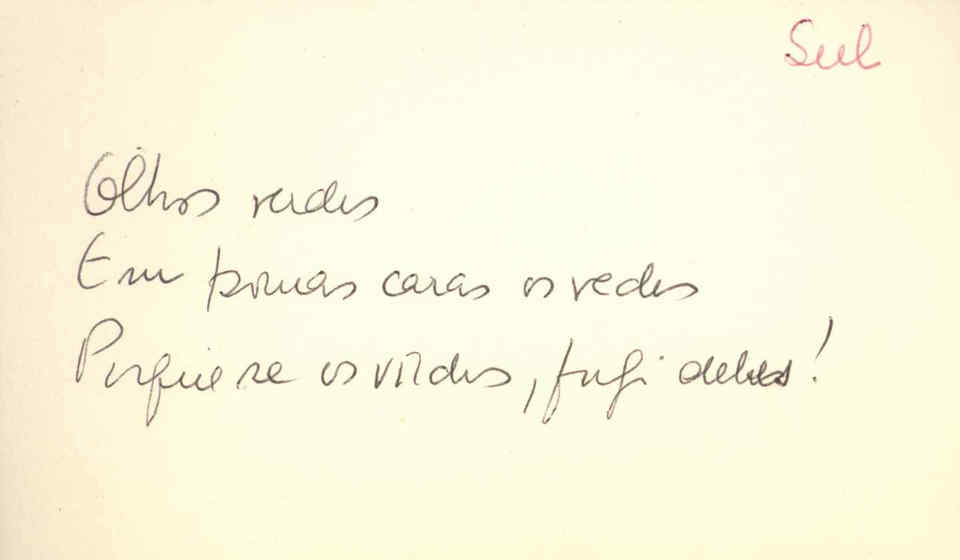 Sul
Olhos verdes
Em poucas caras os vedes
Porque se os virdes, fugi deles!